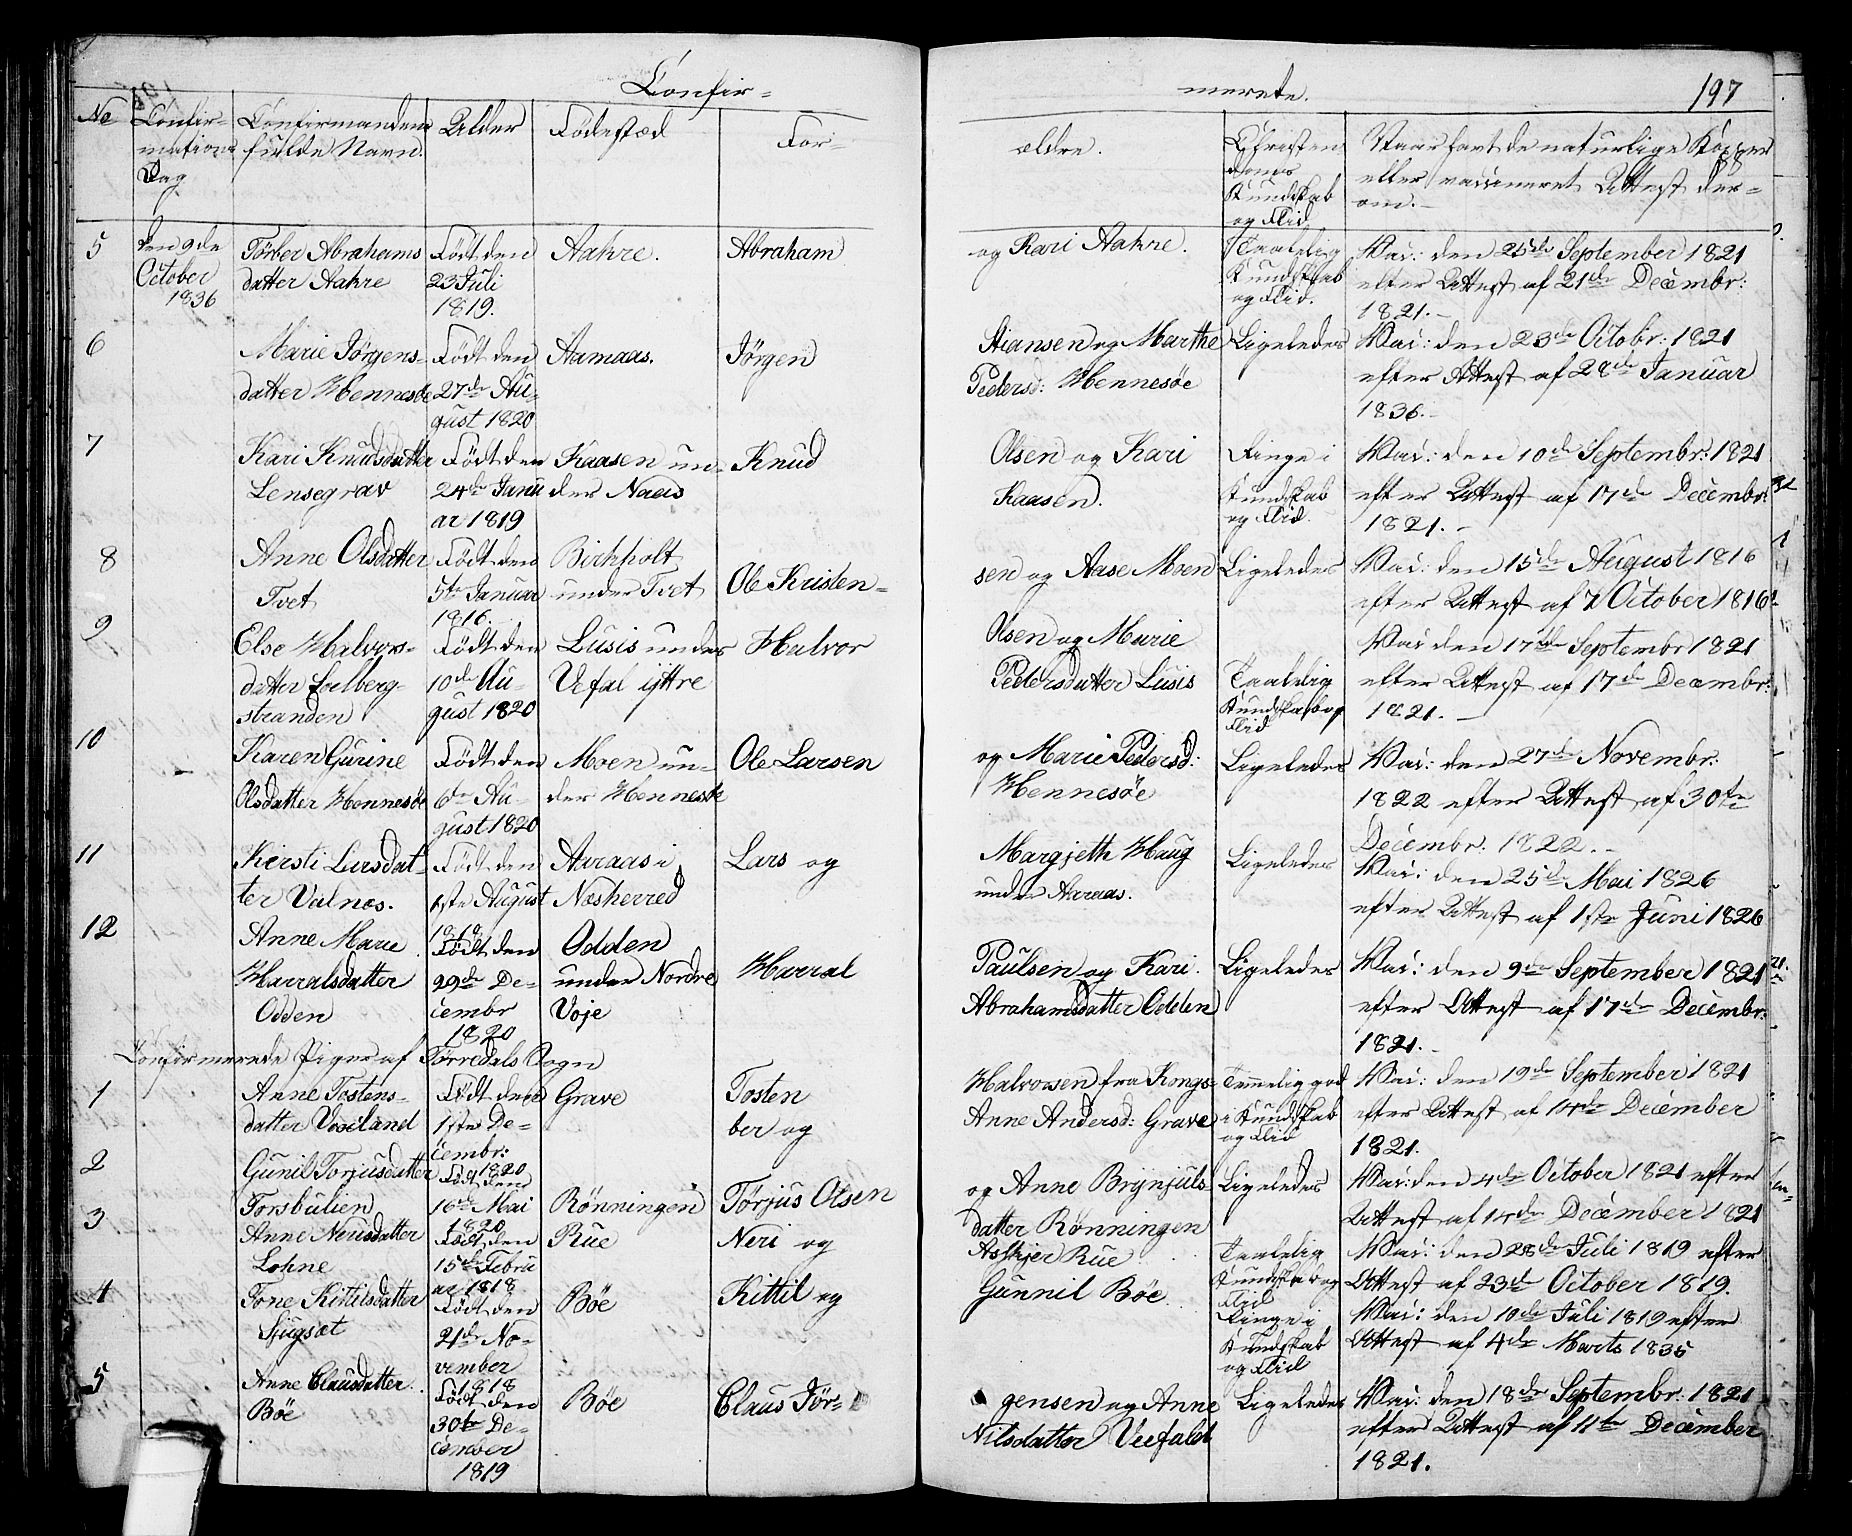 Confir=
merete.
197
No
Confir=
mations
Dag
Confirmandens
fulde Navn.
Alder
Födestæd
For=
ældre.
Christen
doms
Kundskab
og Flid
Hvaar havt de naturlige Kopper
eller vaccineret Attest der=
om.
5
den 9de
October
1836
Törber Abrahams
datter Aakre
Födt den
23 Juli
1819.
Aakre.
Abraham
og Kari Aakre.
Taalelig
Kundskab
og Flid.
Vac: den 25de September 1821
efter Attest af 21de Decembr:
1821.
6
Marie Jörgens=
datter Hennesöe
Födt den
27de Au=
gust 1820
Aamaas.
Jörgen
Stiansen og Marthe
Pedersd: Hennesöe
Ligeledes
Vac: den 23de Octobr: 1821
efter Attest af 28de Januar
1836.
7
Kari Knudsdatter
Lensegrav
Födt den
24de Janu
ar 1819
Kaasen un=
der Naas
Knud
Olsen og Kari
Kaasen.
Ringe i
Kundskab
og Flid.
Vac: den 10de Septembr: 1821
efter Attest af 17de Decembr:
1821.
8
Anne Olsdatter
Tvet
Födt den
5te Januar
1816.
Birkholt
under Tvet
Ole Kristen=
sen og Aase Moen
Ligeledes
Vac: den 15de August 1816
efter Attest af 7 October 1816
9
Else Halvors=
datter Eelberg=
stranden
Födt den
10de Au=
gust 1820
Lusis under
Vefal yttre
Halvor
Olsen og Marie
Pedersdatter Lusis
Taalelig
Kundskab og
Flid
Vac den 17de Septembr 1821
efter Attest af 17de Decembr:
1821.
10
Karen Gurine
Olsdatter Hennesöe
Födt den
6de Au=
gust 1820
Moen un=
der Hennesöe
Ole Larsen
og Marie Pedersd:
Hennesöe
Ligeledes
Vac: den 27de Novembr:
1822 efter Attest af 30te
Decembr. 1822.
11
Kirsti Larsdat=
ter Valnes.
Födt den
1ste August
1818
Aaraas i
Næsherred
Lars og
Margjeth Haug
under Aaraas.
Ligeledes
Vac: den 25de Mai 1826
efter Attest af 1ste Juni 1826
12
Anne Marie
Harralsdatter
Odden
Födt den
29de De=
cembr
1820
Odden
under Nordre
Voje
Harral
Paulsen og Kari
Abrahamsdatter Odden
Ligeledes
Vac: den 9de September 1821
efter Attest af 17de Decembr:
1821.
Confirmerede Piger af Törredals Sogn
1
Anne Tostens=
datter Vosiland
Födt den
1ste De=
cembr:
1820
Grave
Tosten
ber og
Halvorsen fra Kongs=
Anne Andersd: Grave
Temmelig god
i Kundskab
og Flid
Vac: den 19de September 1821
efter Attest af 14de December
1821.
2
Gunil Torjusdatter
Torsbulien
Födt den
16de Mai
1820
Rönningen
Törjus Olsen
og Anne Brynjuls
datter Rönningen
Ligeledes
Vac: den 4de October 1821 efter
Attest af 14de December 1821
3
Anne Nerisdatter
Lohne
Födt den
15de Febru
ar 1818
Rue
Neri og
Askjer Rue
Taalelig
Kundskab og
Flid
Vac: den 28de Juli 1819 efter
Attest af 23de October 1819.
4
Tone Kittilsdatter
Sjugsæt
Födt den
21de No=
vember
1818
Böe
Kittil og
Gunnil Böe
Ringe i
Kundskab
og Flid
Vac: den 10de Juli 1819 efter
Attest af 4de Marts 1835
5
Anne Clausdatter
Böe
Födt den
30te De=
cember
1819
Böe
Claus Jör=
gensen og Anne
Nilsdatter Veefaldt
Ligeledes
Vac: den 18de Septembr: 1821
efter Attest af 11te December
1821.